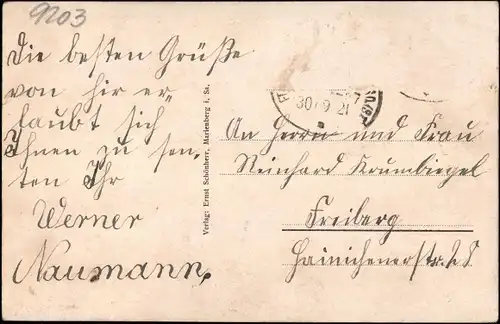 9203
Die besten Grüße
von hir er-
laubt sich
Ihnen zu sen-
ten Ihr
Werner
Naumann.
Verlag: Ernst Schönherr, Marienberg i. Sa.
30. 9 21
An Herrn und Frau
Reinhard Krumbiegel
Freiberg
Hainichenerstr.